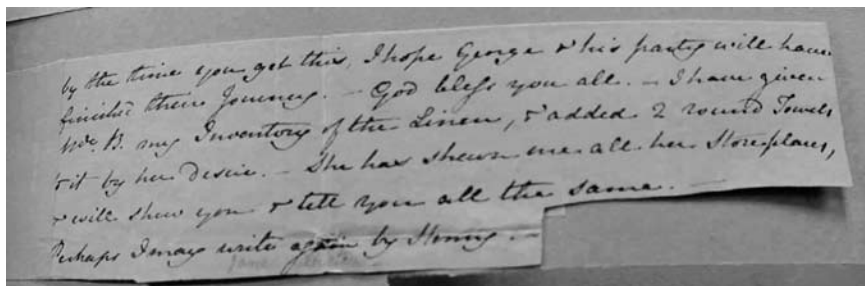 by the time you get this, I hope George & his party will have
finished their Journey. – God bless you all. – I have given
Mrs. B. my Inventory of the Linen, & added 2 round Towels
to it by her desire. – She has shewn me all her Storeplaces,
& will shew you & tell you all the same. –
Perhaps I may write again by Henry. –